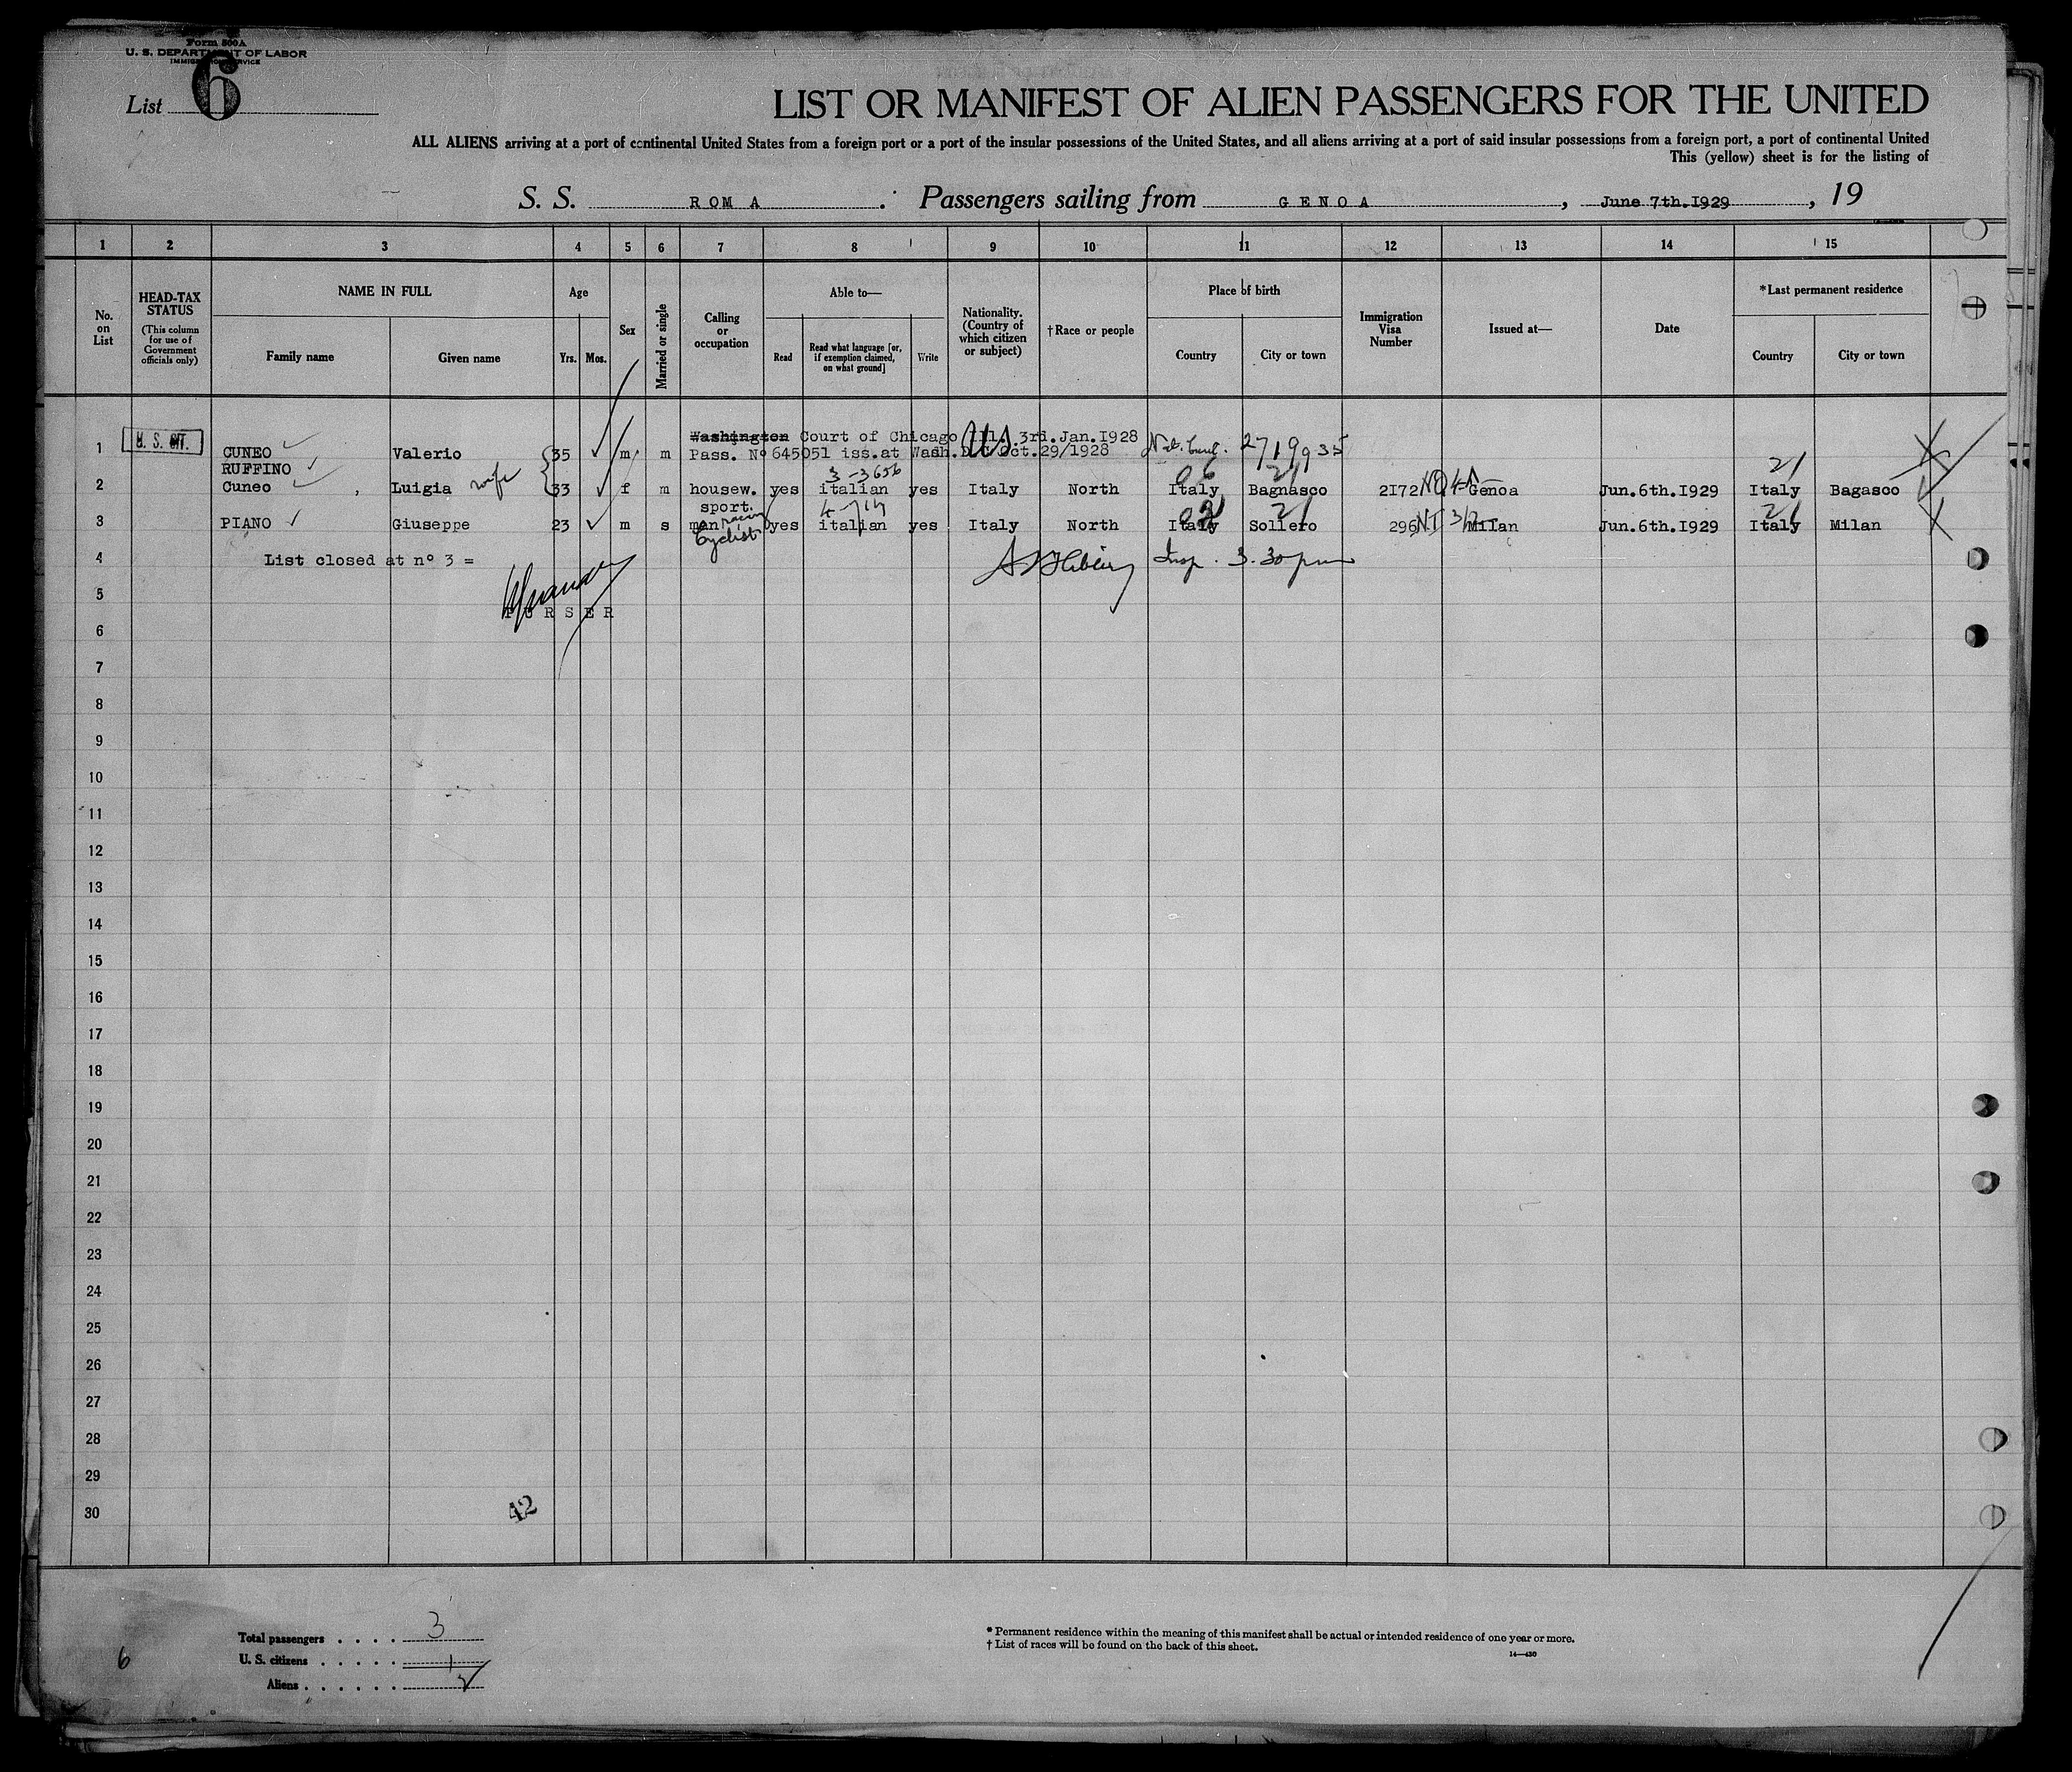 Form 500A
U. S. DEPARTMENT OF LABOR
IMMIGRATION SERVICE
List 6
LIST OR MANIFEST OF ALIEN PASSENGERS FOR THE UNITED
ALL ALIENS arriving at a port of continental United States from a foreign port or a port of the insular possessions of the United States, and all aliens arriving at a port of said insular possessions from a foreign port, a port of continental United
This (yellow) sheet is for the listing of
S. S. ROMA Passengers sailing from GENOA, June 7th.I929, 19
1 2 3 4 5 6 7 8 9 10 11 12 13 14 15
No. on List
HEAD-TAX STATUS (This column for use of Government officials only)
NAME IN FULL
Family name Given name
Age
Yrs. Mos.
Sex
Married or single
Calling or occupation
Able to—
Read
Read what language [or, if exemption claimed, on what ground]
Write
Nationality. (Country of which citizen or subject)
†Race or people
Place of birth
Country City or town
Immigration Visa Number
Issued at—
Date
*Last permanent residence
Country City or town
Washington Court of Chicago Ill. 3rd.Jan.I928
1 U. S. CIT. CUNEO Valerio 35 m m Pass. Nº 645051 iss.at Wash.D.C Oct.29/1928 U.S. 2719935
RUFFINO 3-3656 06 21 21
2 Cuneo , Luigia wife 33 f m housew. yes italian yes Italy North Italy Bagnasco 2I72 NQ 4- Genoa Jun.6th.I929 Italy Bagasco
sport. 21 21
3 PIANO Giuseppe 23 m s man racing yes italian yes Italy North Italy Sollero 296 NI 3/ Milan Jun.6th.I929 Italy Milan
Cyclist
4 List closed at nº 3 = Insp. 3.30 pm
5
PURSER
6
7
8
9
10
11
12
13
14
15
16
17
18
19
20
21
22
23
24
25
26
27
28
29
30
42
Total passengers . . . . 3
U. S. citizens . . . . . 1
Aliens . . . . . . 2
6
* Permanent residence within the meaning of this manifest shall be actual or intended residence of one year or more.
† List of races will be found on the back of this sheet.
14—430